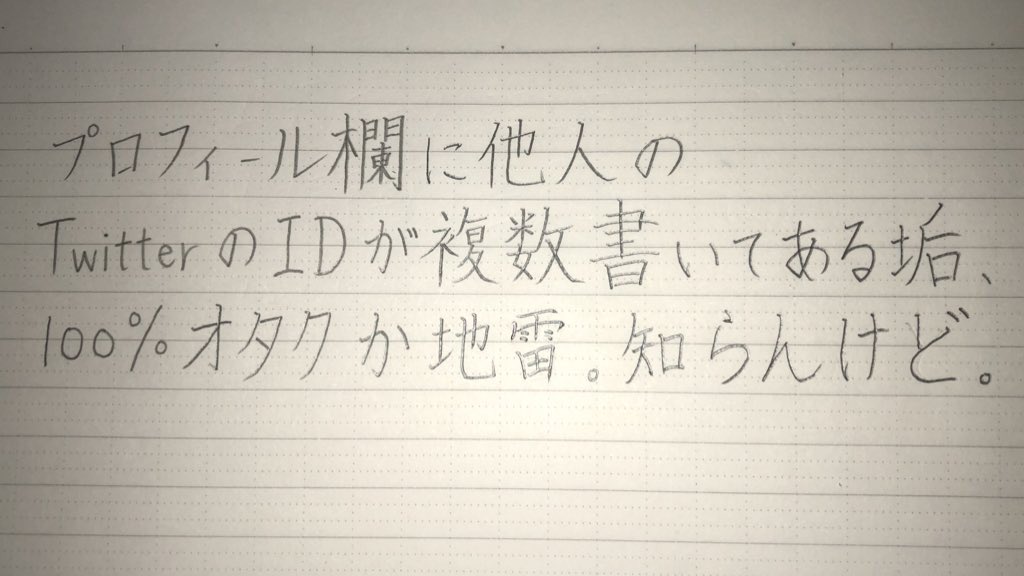 プロフィール欄に他人の
TwitterのIDが複数書いてある垢、
100%オタクか地雷。知らんけど。